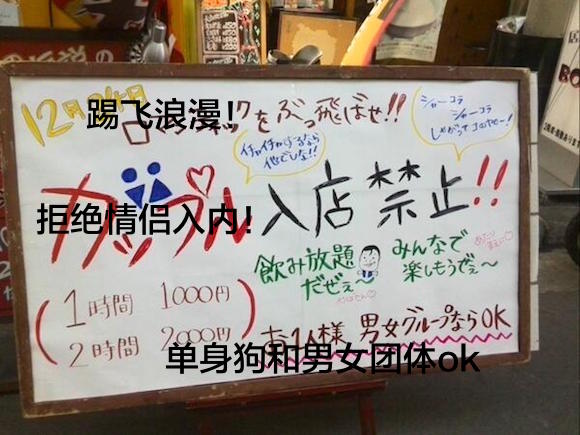 12月24日
踢飞浪漫!
ロマンチックをぶっ飛ばせ!!
イチャイチャするなら
他でしな!!
シャーコラ
シャーコラ
カップル入店禁止!!
拒绝情侣入内!
飲み放題
だぜぇ〜
みんなで
楽しもうぜぇ〜
1時間 1000円
2時間 2000円
お1人様 男女グループならOK
单身狗和男女团体ok